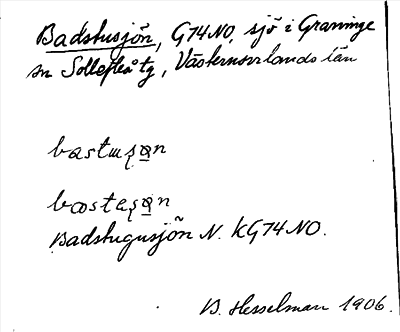 Badstusjön, G74NO, sjö i Graninge
sn Sollefteå tg, Västernorrlands län
bastuʂα̲n
basteʂα̲n
Badstugusjön N. KG74NO.
B. Hesselman 1906.